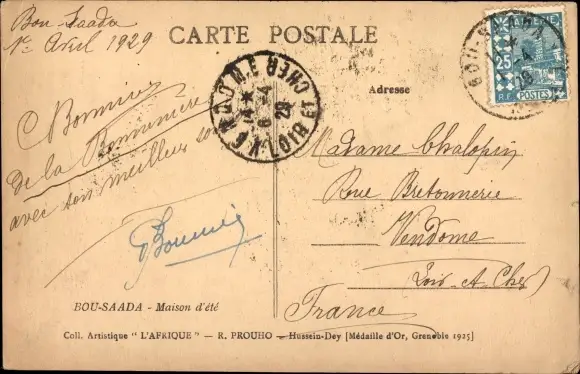 Bou-Saada
1er Avril 1929
CARTE POSTALE
ALGERIE
25
R.F. POSTES
BOU-SAADA
-4
VENDOME
14 *
6 -4
29
LOIR-ET-CHER
Adresse
de la
avec son meilleur
Madame Chalopin
Rue Bretonnerie
Vendome
Loir-et-Cher
France
BOU-SAADA - Maison d'été
Coll. Artistique "L'AFRIQUE" — R. PROUHO — Hussein-Dey [Médaille d'Or, Grenoble 1925]